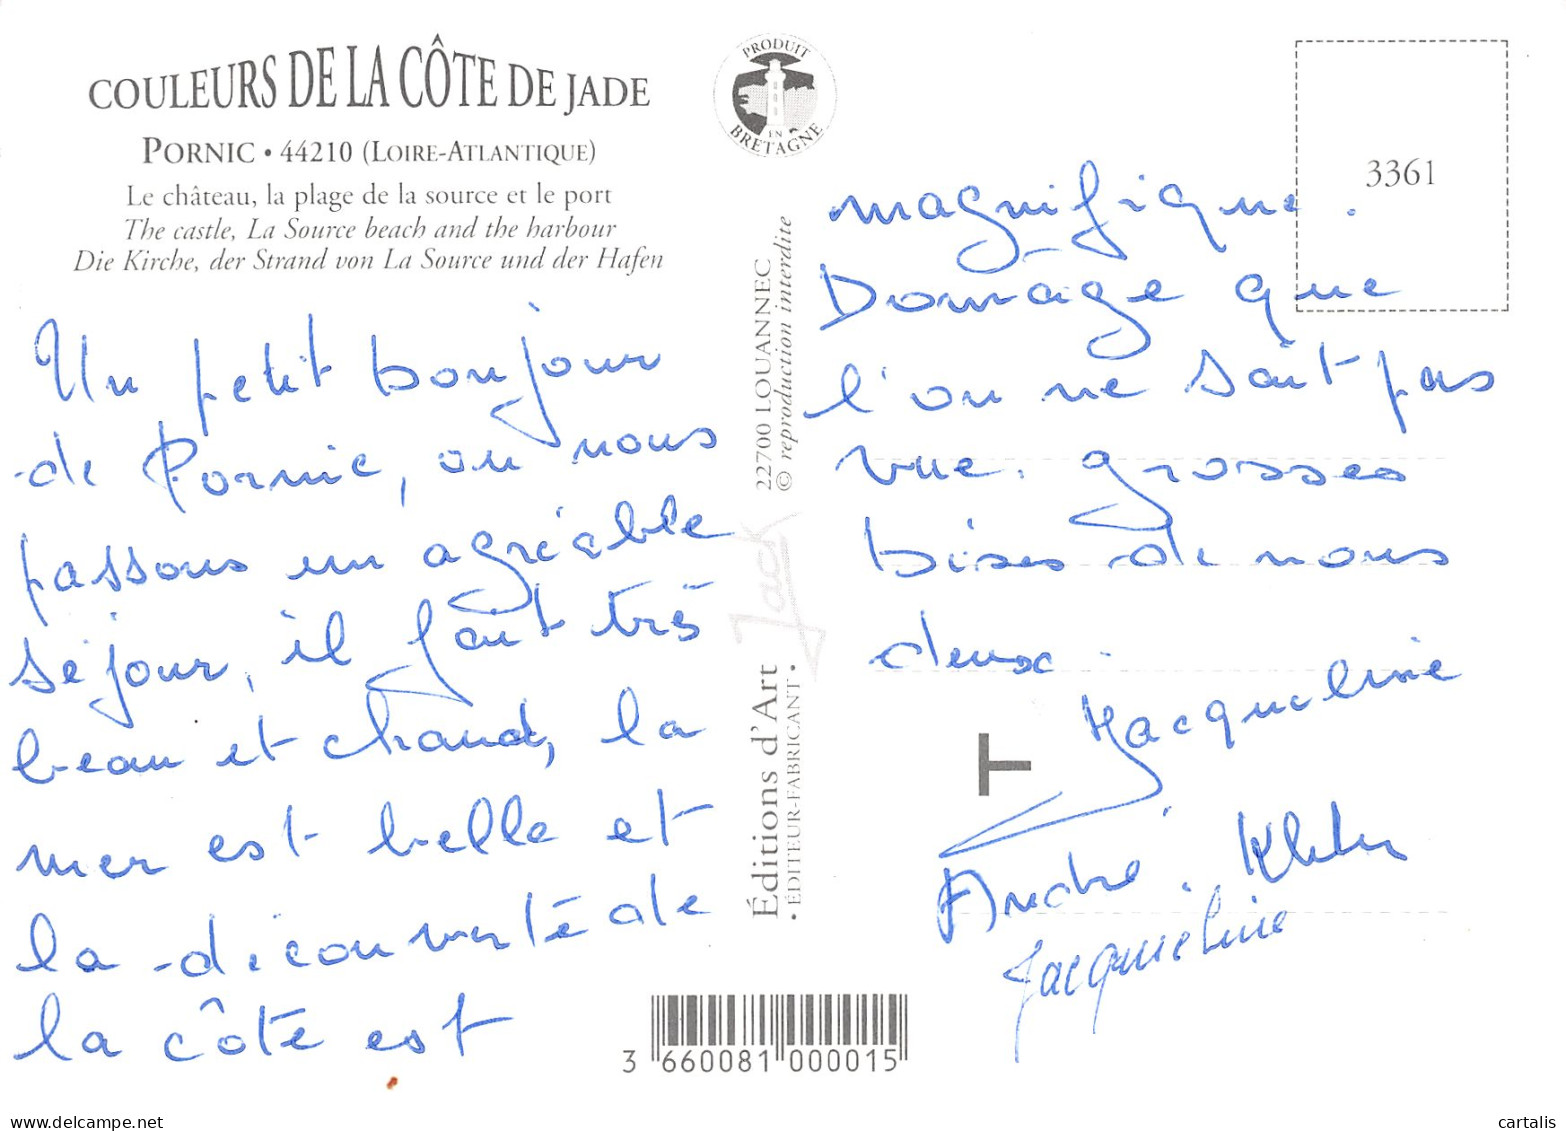 COULEURS DE LA CÔTE DE JADE
PORNIC • 44210 (LOIRE-ATLANTIQUE)
Le château, la plage de la source et le port
The castle, La Source beach and the harbour
Die Kirche, der Strand von La Source und der Hafen
PRODUIT
EN
BRETAGNE
3361
Un petit bonjour
de Pornic, ou nous
passons un agréable
séjour, il fait très
beau et chaud, la
mer est belle et
la découverte de
la côte est
magnifique.
Domage que
l'on ne sait pas
vue. grosses
bises de nous
deux.
Jacqueline
André.
Jacqueline
Éditions d'Art
Jack
22700 LOUANNEC
• ÉDITEUR-FABRICANT •
© reproduction interdite
T
3 660081 000015
www.delcampe.net
cartalis